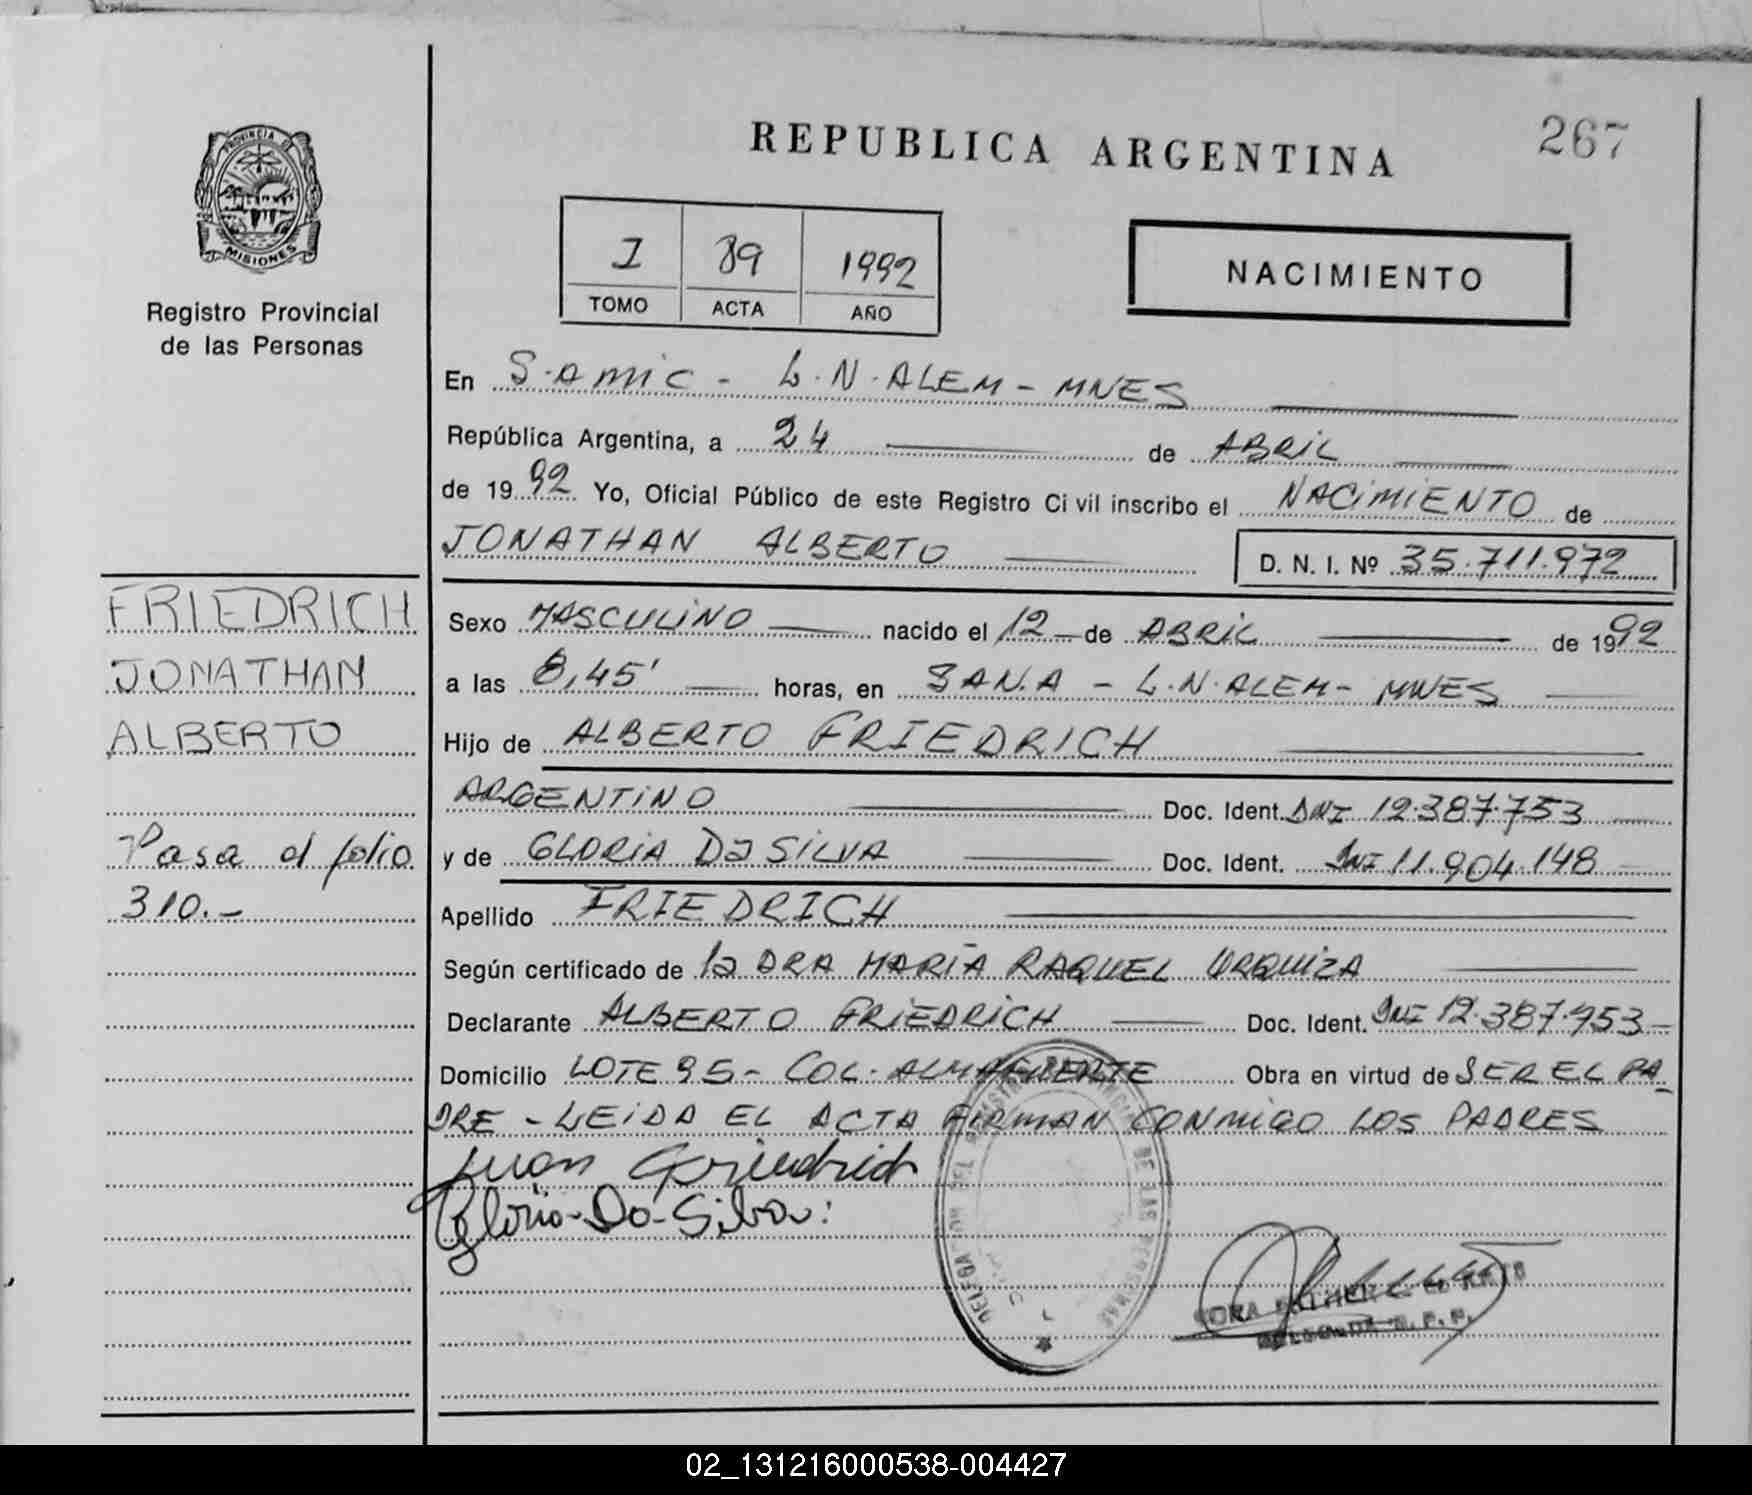 REPUBLICA ARGENTINA
267
PROVINCIA DE
MISIONES
Registro Provincial
de las Personas
I 89 1992
TOMO ACTA AÑO
NACIMIENTO
En S.AMIC - L.N.ALEM - MNES
República Argentina, a 24 de ABRIL
de 1992 Yo, Oficial Público de este Registro Civil inscribo el NACIMIENTO de
JONATHAN ALBERTO D. N. I. Nº 35.711.972
FRIEDRICH
JONATHAN
ALBERTO
Pasa al folio
310.-
Sexo MASCULINO nacido el 12 de ABRIL de 1992
a las 8,45' horas, en SAN.A - L.N.ALEM - MNES
Hijo de ALBERTO FRIEDRICH
ARGENTINO Doc. Ident. DNI 12.387.753
y de GLORIA Da SILVA Doc. Ident. DNI 11.904.148
Apellido FRIEDRICH
Según certificado de la DRA MARÍA RAQUEL URQUIZA
Declarante ALBERTO FRIEDRICH Doc. Ident. DNI 12.387.953
Domicilio LOTE 95 - COL. ALMAFUERTE Obra en virtud de SER EL PA-
DRE - LEIDA EL ACTA FIRMAN CONMIGO LOS PADRES
Gloria Da Silva
DE LAS PERSONAS
02_131216000538-004427